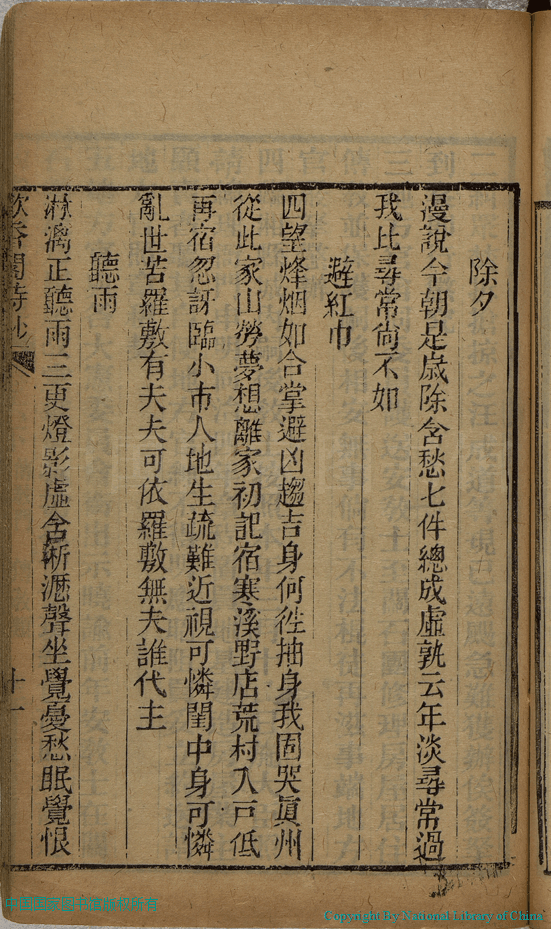 除夕
漫說今朝是歲除含愁七件總成虛孰云年淡尋常過
我比尋常尙不如
避紅巾
四望烽烟如合掌避凶趨吉身何徃抽身我固哭眞州
從此家山勞夢想離家初記宿寒溪野店荒村入戸低
再宿忽訝臨小市人地生疏難近視可憐閨中身可憐
亂世苦羅敷有夫夫可依羅敷無夫誰代主
聽雨
淋漓正聽雨三更燈影虛含淅瀝聲坐覺憂愁眠覺恨
香閣詩鈔
十一
Copyright by National Library of China